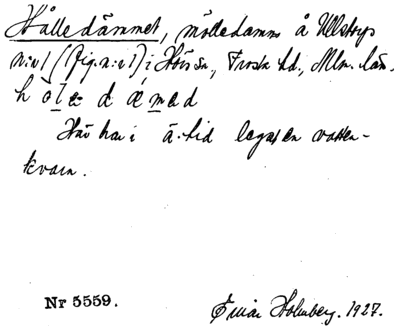 Hålledämmet, mölledamm å Ullstorp
n:o 1 (Fig. n:o 1) i Hörsn, Frosta hd., Mlm. län.
h ö l e d ǽ m e d
Här har i ä. tid legat en vatten-
kvarn.
Nr 5559.
Einar Holmberg. 1927.